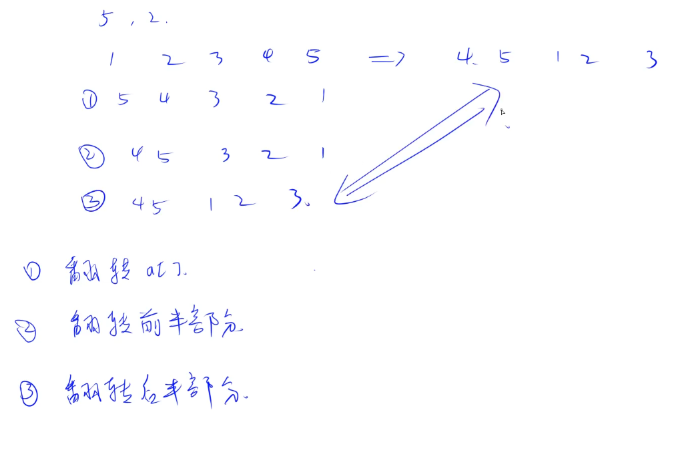 5 , 2.
1 2 3 4 5 => 4. 5 1 2 3
① 5 4 3 2 1
② 4 5 3 2 1
③ 4 5 1 2 3.
① 翻转 a[].
② 翻转前半部分.
③ 翻转后半部分.